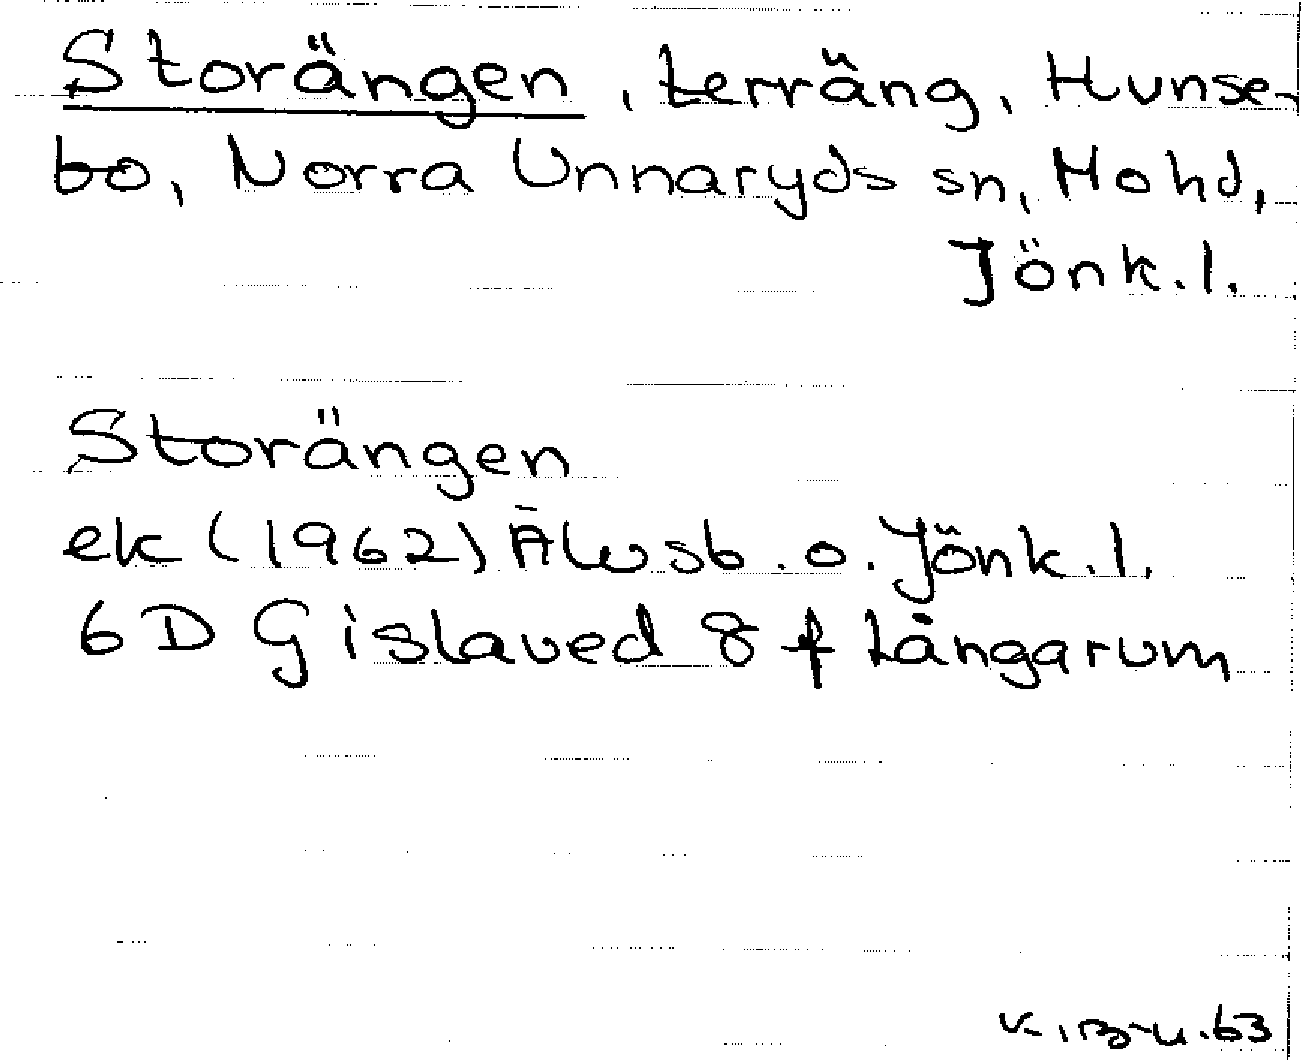 Storängen, terräng, Hunse-
bo, Norra Unnaryds sn, Mohd,
Jönk.l.
Storängen
ek (1962) Älvsb. o. Jönk.l.
6D Gislaved 8f Långarum